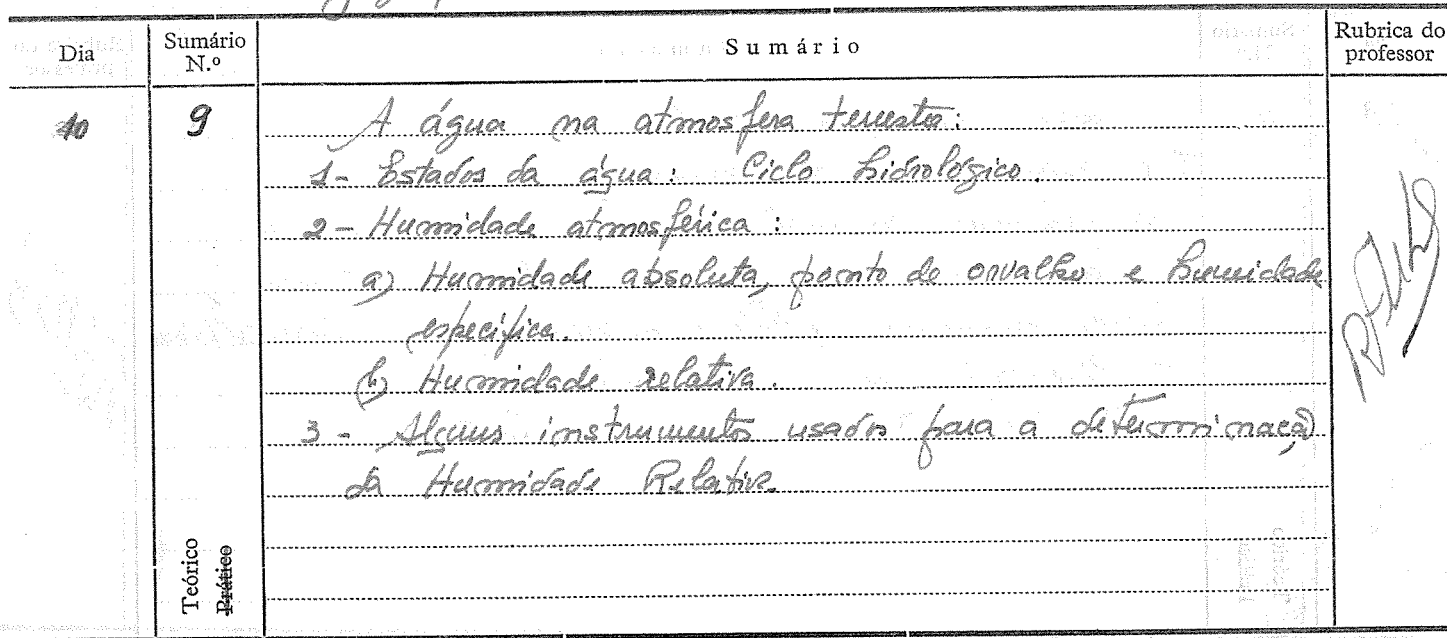 Dia
Sumário N.º
Sumário
Rubrica do professor
10
9
A água na atmosfera terrestre:
1- Estados da água: Ciclo hidrológico.
2- Humidade atmosférica:
a) Humidade absoluta, ponto de orvalho e humidade
específica.
b) Humidade relativa.
3- Alguns instrumentos usados para a determinação
da Humidade Relativa.
Teórico
Prático